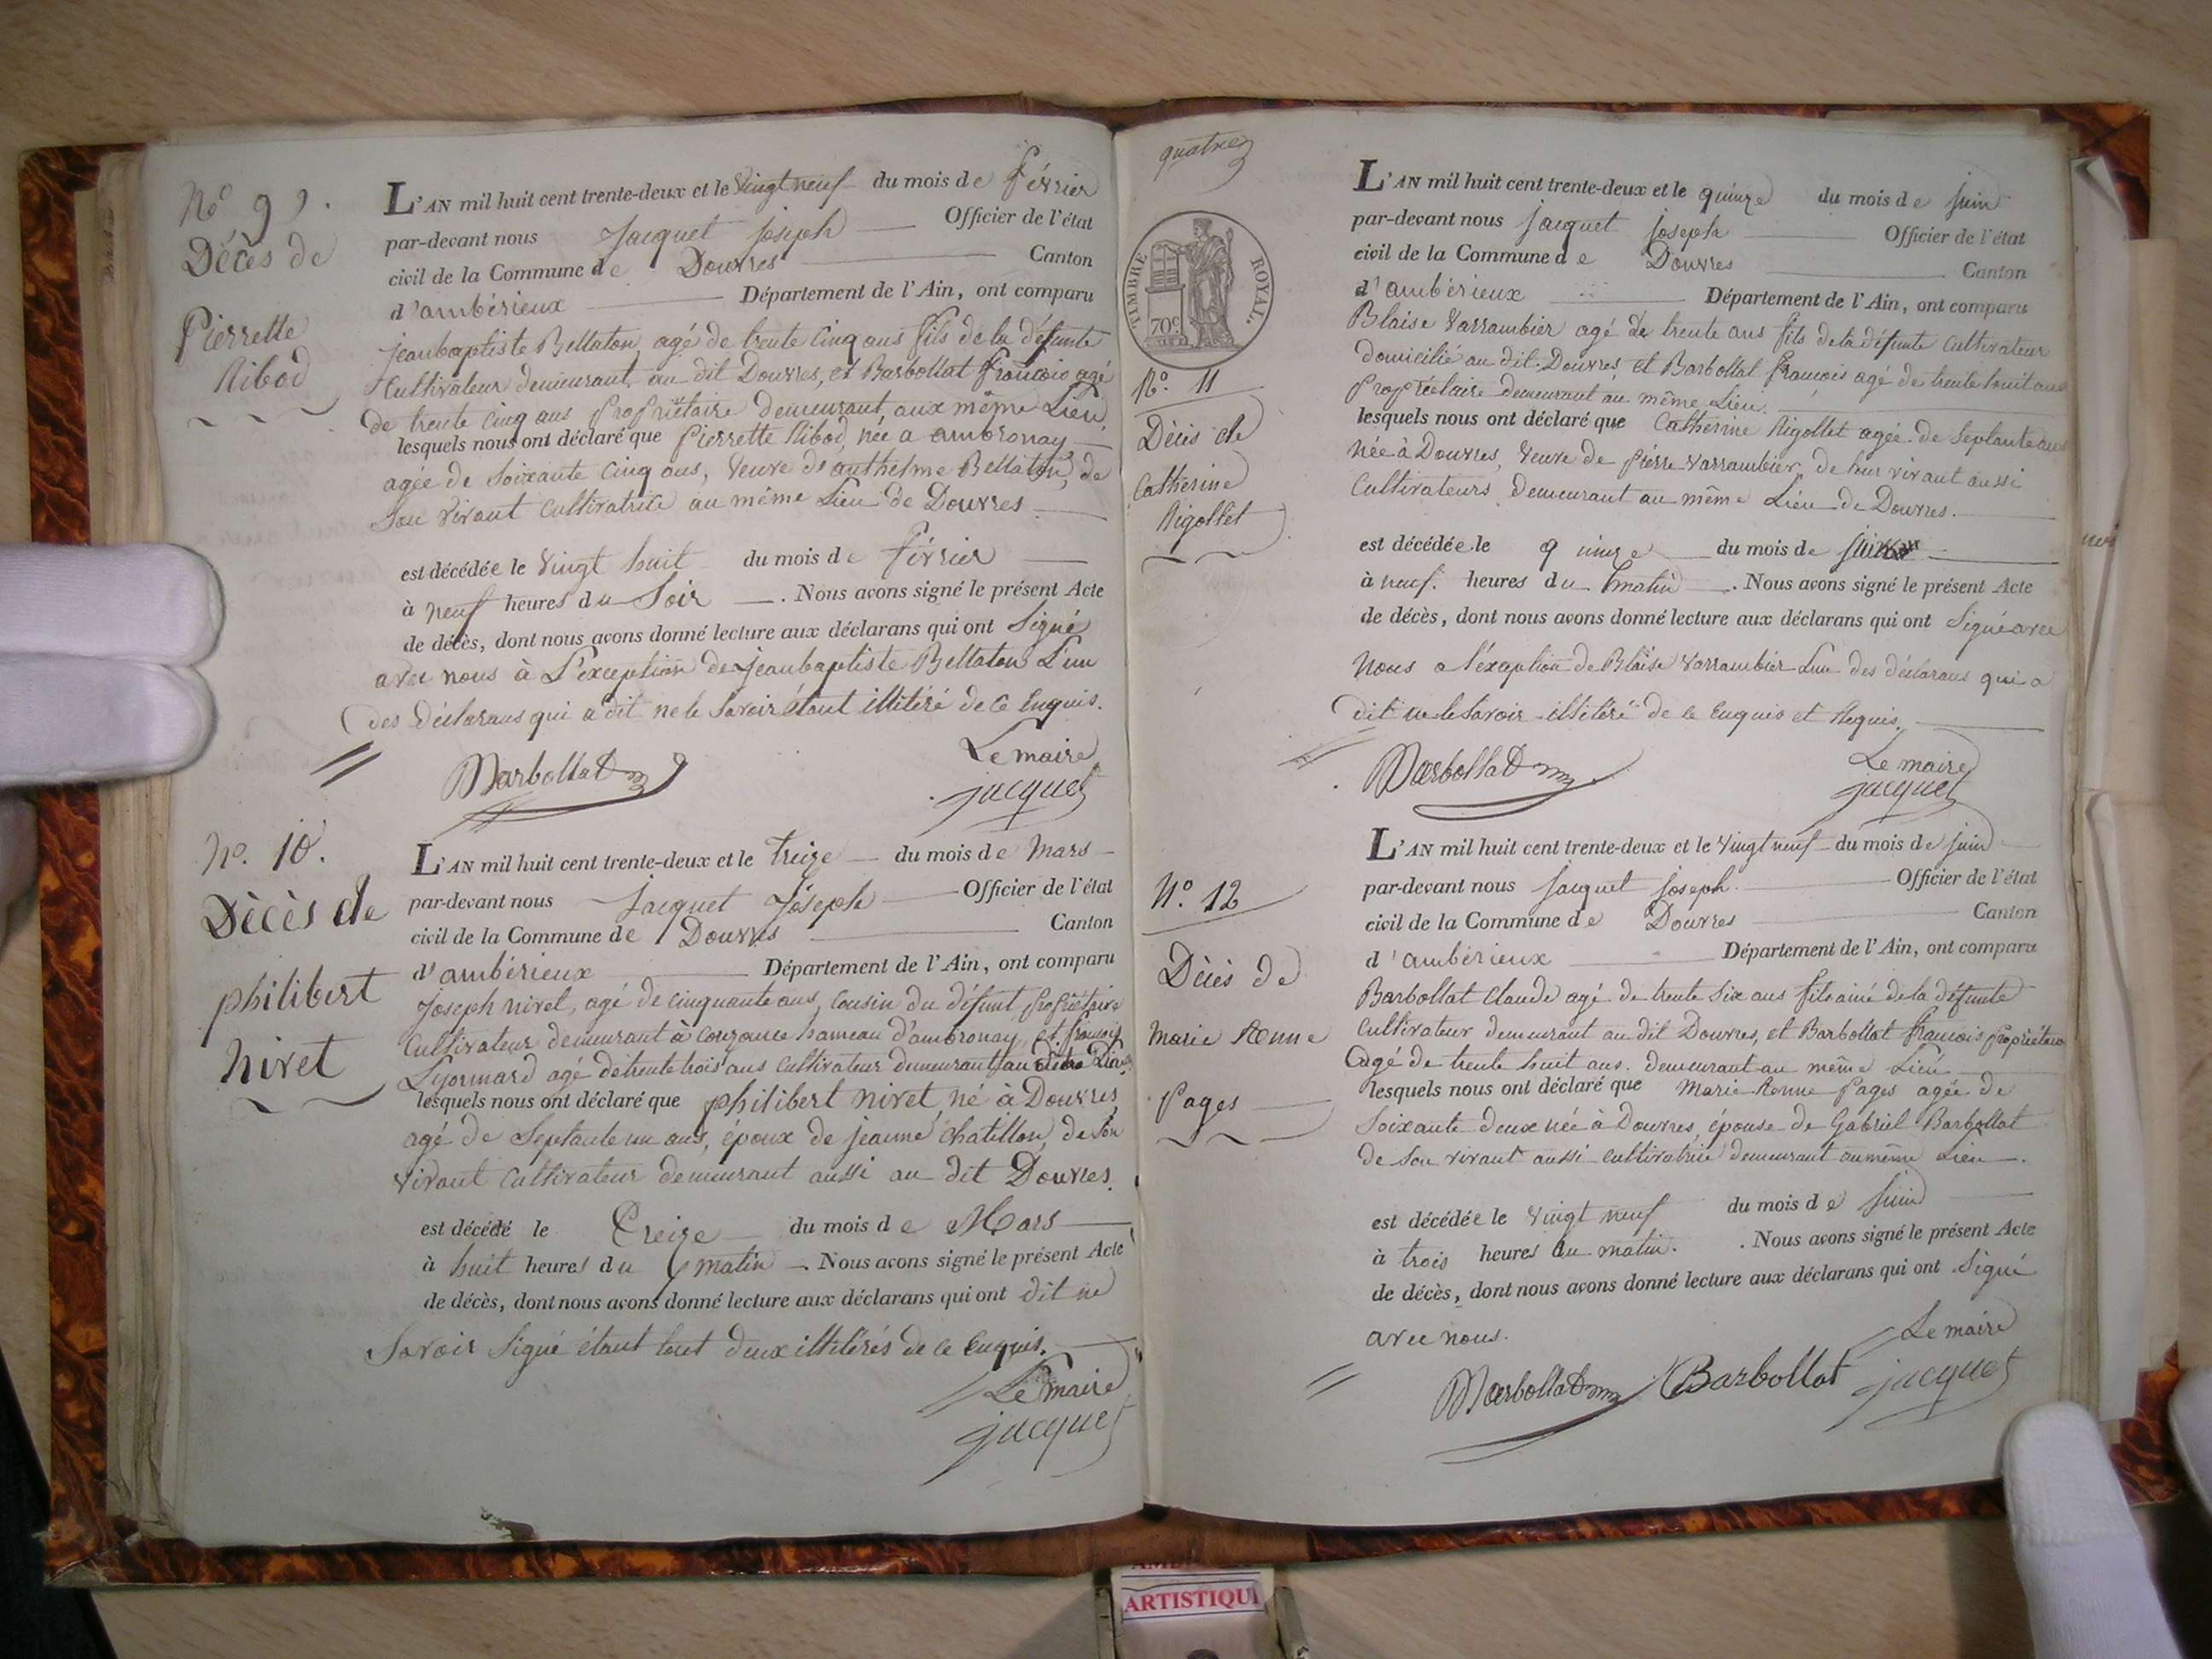 No 9 9.
Décès de
Pierrette
Ribod
L'AN mil huit cent trente-deux et le Vingt neuf du mois de février
par-devant nous Jacquet joseph Officier de l'état
civil de la Commune de Douvres Canton
d'ambérieux Département de l'Ain, ont comparu
jeanbaptiste Bellaton agé de trente Cinq ans fils de la défunte
Cultivateur demeurant au dit Douvres, et Barbollat françois agé
de trente cinq ans Propriétaire demeurant aux même Lieu
lesquels nous ont déclaré que Pierrette Ribod, née a ambronay
agée de Soixante Cinq ans, Veuve d'anthelme Bellaton, de
Son vivant Cultivatrice au même Lieu de Douvres
est décédée le Vingt huit du mois de février
à neuf heures du Soir. Nous avons signé le présent Acte
de décès, dont nous avons donné lecture aux déclarans qui ont Signé
avec nous à L'exception de jeanbaptiste Bellaton L'un
des Déclarans qui a dit ne le Savoir étant illitéré de ce Enquis.
Barbollat
Le maire
jacquet
No. 10.
Dècès de
philibert
nivet
L'AN mil huit cent trente-deux et le treize du mois de Mars
par-devant nous Jacquet Joseph Officier de l'état
civil de la Commune de Douvres Canton
d'ambérieux Département de l'Ain, ont comparu
Joseph nivet, agé de cinquante ans, Cousin du défunt propriétaire
Cultivateur demeurant à Couzance hameau d'ambronay, et françois
Lyonnard agé de trente trois ans Cultivateur demeurant au Lieu
lesquels nous ont déclaré que philibert nivet, né à Douvres
agé de Septante un ans, époux de jeanne Chatillon, de son
vivant Cultivateur demeurant aussi au dit Douvres.
est décédé le Treize du mois de Mars
à huit heures du matin. Nous avons signé le présent Acte
de décès, dont nous avons donné lecture aux déclarans qui ont dit ne
Savoir Signé étant tout deux illitérés de ce Enquis.
Le maire
jacquet
quatre
TIMBRE ROYAL.
70c.
No. 11
Décès de
Catherine
Rigollet
L'AN mil huit cent trente-deux et le quinze du mois de juin
par-devant nous jacquet joseph Officier de l'état
civil de la Commune de Douvres Canton
d'ambérieux Département de l'Ain, ont comparu
Blaise Varrambier agé de trente ans fils de la défunte Cultivateur
domicilié au dit Douvres, et Barbollat françois agé de trente huit ans
Propriétaire demeurant au même Lieu.
lesquels nous ont déclaré que Catherine Rigollet agée de Septante ans
née à Douvres, Veuve de pierre Varrambier, de leur vivant aussi
Cultivateurs demeurant au même Lieu de Douvres.
est décédée le quinze du mois de juin
à neuf. heures du matin. Nous avons signé le présent Acte
de décès, dont nous avons donné lecture aux déclarans qui ont Signé avec
Nous a l'éxaption de Blaise Varrambier L'un des déclarans qui a
dit ne le Savoir illitéré de ce Enquis et Requis.
Barbollat
Le maire
jacquet
N° 12
Décès de
marie Anne
Pages
L'AN mil huit cent trente-deux et le Vingt neuf du mois de juin
par-devant nous jacquet joseph Officier de l'état
civil de la Commune de Douvres Canton
d'ambérieux Département de l'Ain, ont comparu
Barbollat Claude agé de trente Six ans fils ainé de la défunte
Cultivateur demeurant au dit Douvres, et Barbollat françois propriétaire
agé de trente huit ans. demeurant au même Lieu
lesquels nous ont déclaré que Marie Anne Pages agée de
Soixante deux née à Douvres, épouse de Gabriel Barbollat
de Son vivant aussi cultivatrice demeurant au même Lieu.
est décédée le Vingt neuf du mois de juin
à trois heures du matin. Nous avons signé le présent Acte
de décès, dont nous avons donné lecture aux déclarans qui ont Signé
avec nous.
Barbollat Barbollat
Le maire
jacquet
ARTISTIQU